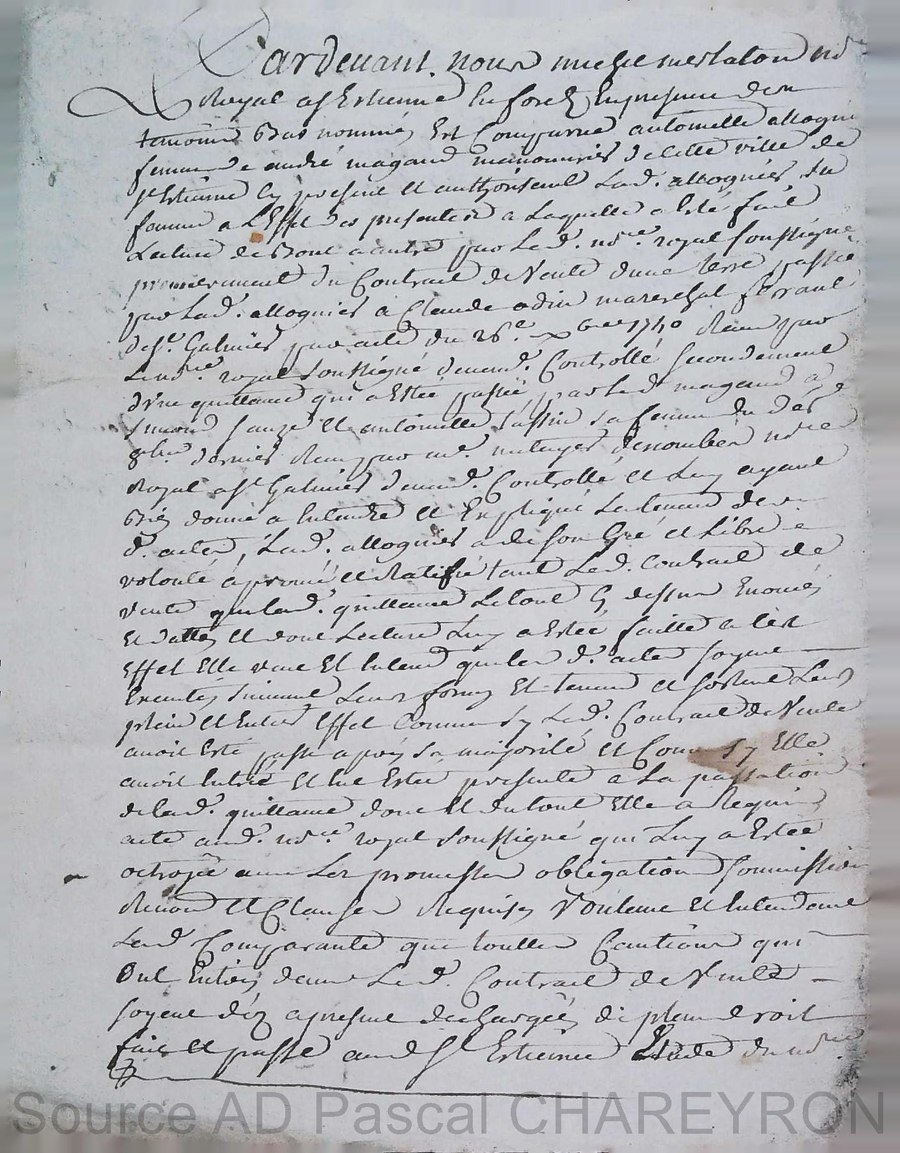 Pardevant nous michel merlaton no.re
Royal a St Estienne en forez En presence des
temoins Bas nommés Est Comparüe antoinette allognie
femme a andré magand manouvrier de cette ville de
St Estienne Cy present et authorisant Lad. allognier sa
femme a L'Effet des presentes a Laquelle a Esté fait
Lecture de Bout a autre par Led. no.re royal soussigné
premierement du Contract de Vente d'une terre passée
par Lad. allognier à Claude odin mareschal ferrant
de St. Galmier par acte du 26e. xbre 1740 Receu par
Led. no.re royal soussigné deuemt. Controllé secondement
d'une quittance qui a Esté passée par Led. magand a
simond sauze et antoinette sa femme du
8bre dernier Receu par me. no.re
Royal a St Galmier deuemt. Controllé et Luy ayant
Bien donné a Entendre et Expliqué Le tenant des
d. actes, Lad. allognier a de son Gré et Libre
volonté aprouvé et Ratiffié tant Led. Contract de
vente que lad. quittance Le tout Cy dessus Enoncés
Et dattés et dont Lecture Luy a Estée faitte a cet
Effet Elle veut Et Entend que les d. actes soyent
Executés suivant Leurs forme Et teneur et sortent Leurs
plein et Entier Effet Comme sy Led. Contract de Vente
avoit Esté passé apres sa majorité et Comme sy Elle
avoit Entré Et Eut Estée presente a La passation
de lad. quittance dont Et du tout Elle a Requis
acte aud. no.re royal soussigné qui Luy a Estée
octroyé avec Les promesses obligation soumission
Renon et Clauses Requises Voulant et Entendant
Lad. Comparante que touttes Cautions qui
ont Entrés dans Led. Contract de Vente
soyent d'éz apresent dechargées de plein droit
fait et passé aud. St Estienne Etude du no.re
Source AD Pascal CHAREYRON